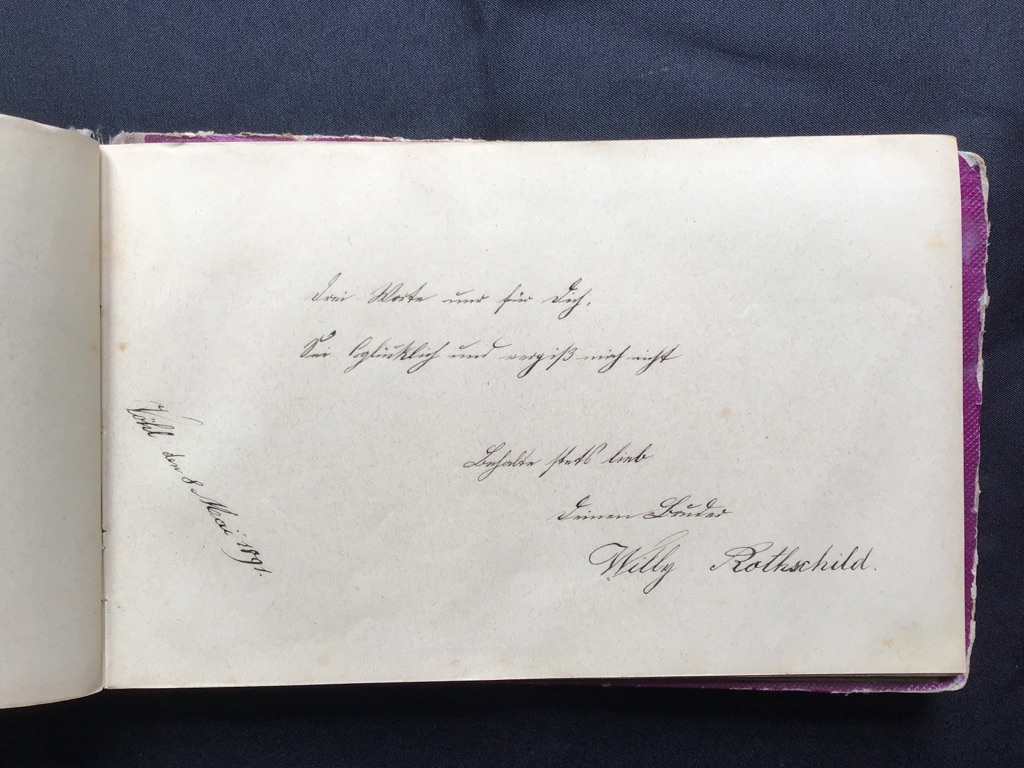 Drei Worte nur für Dich,
Sei beglücklich und vergiß mich nicht
Behalte stets lieb
Deinen Bruder
Willy Rothschild.
Vöhl den 8 Mai 1891.